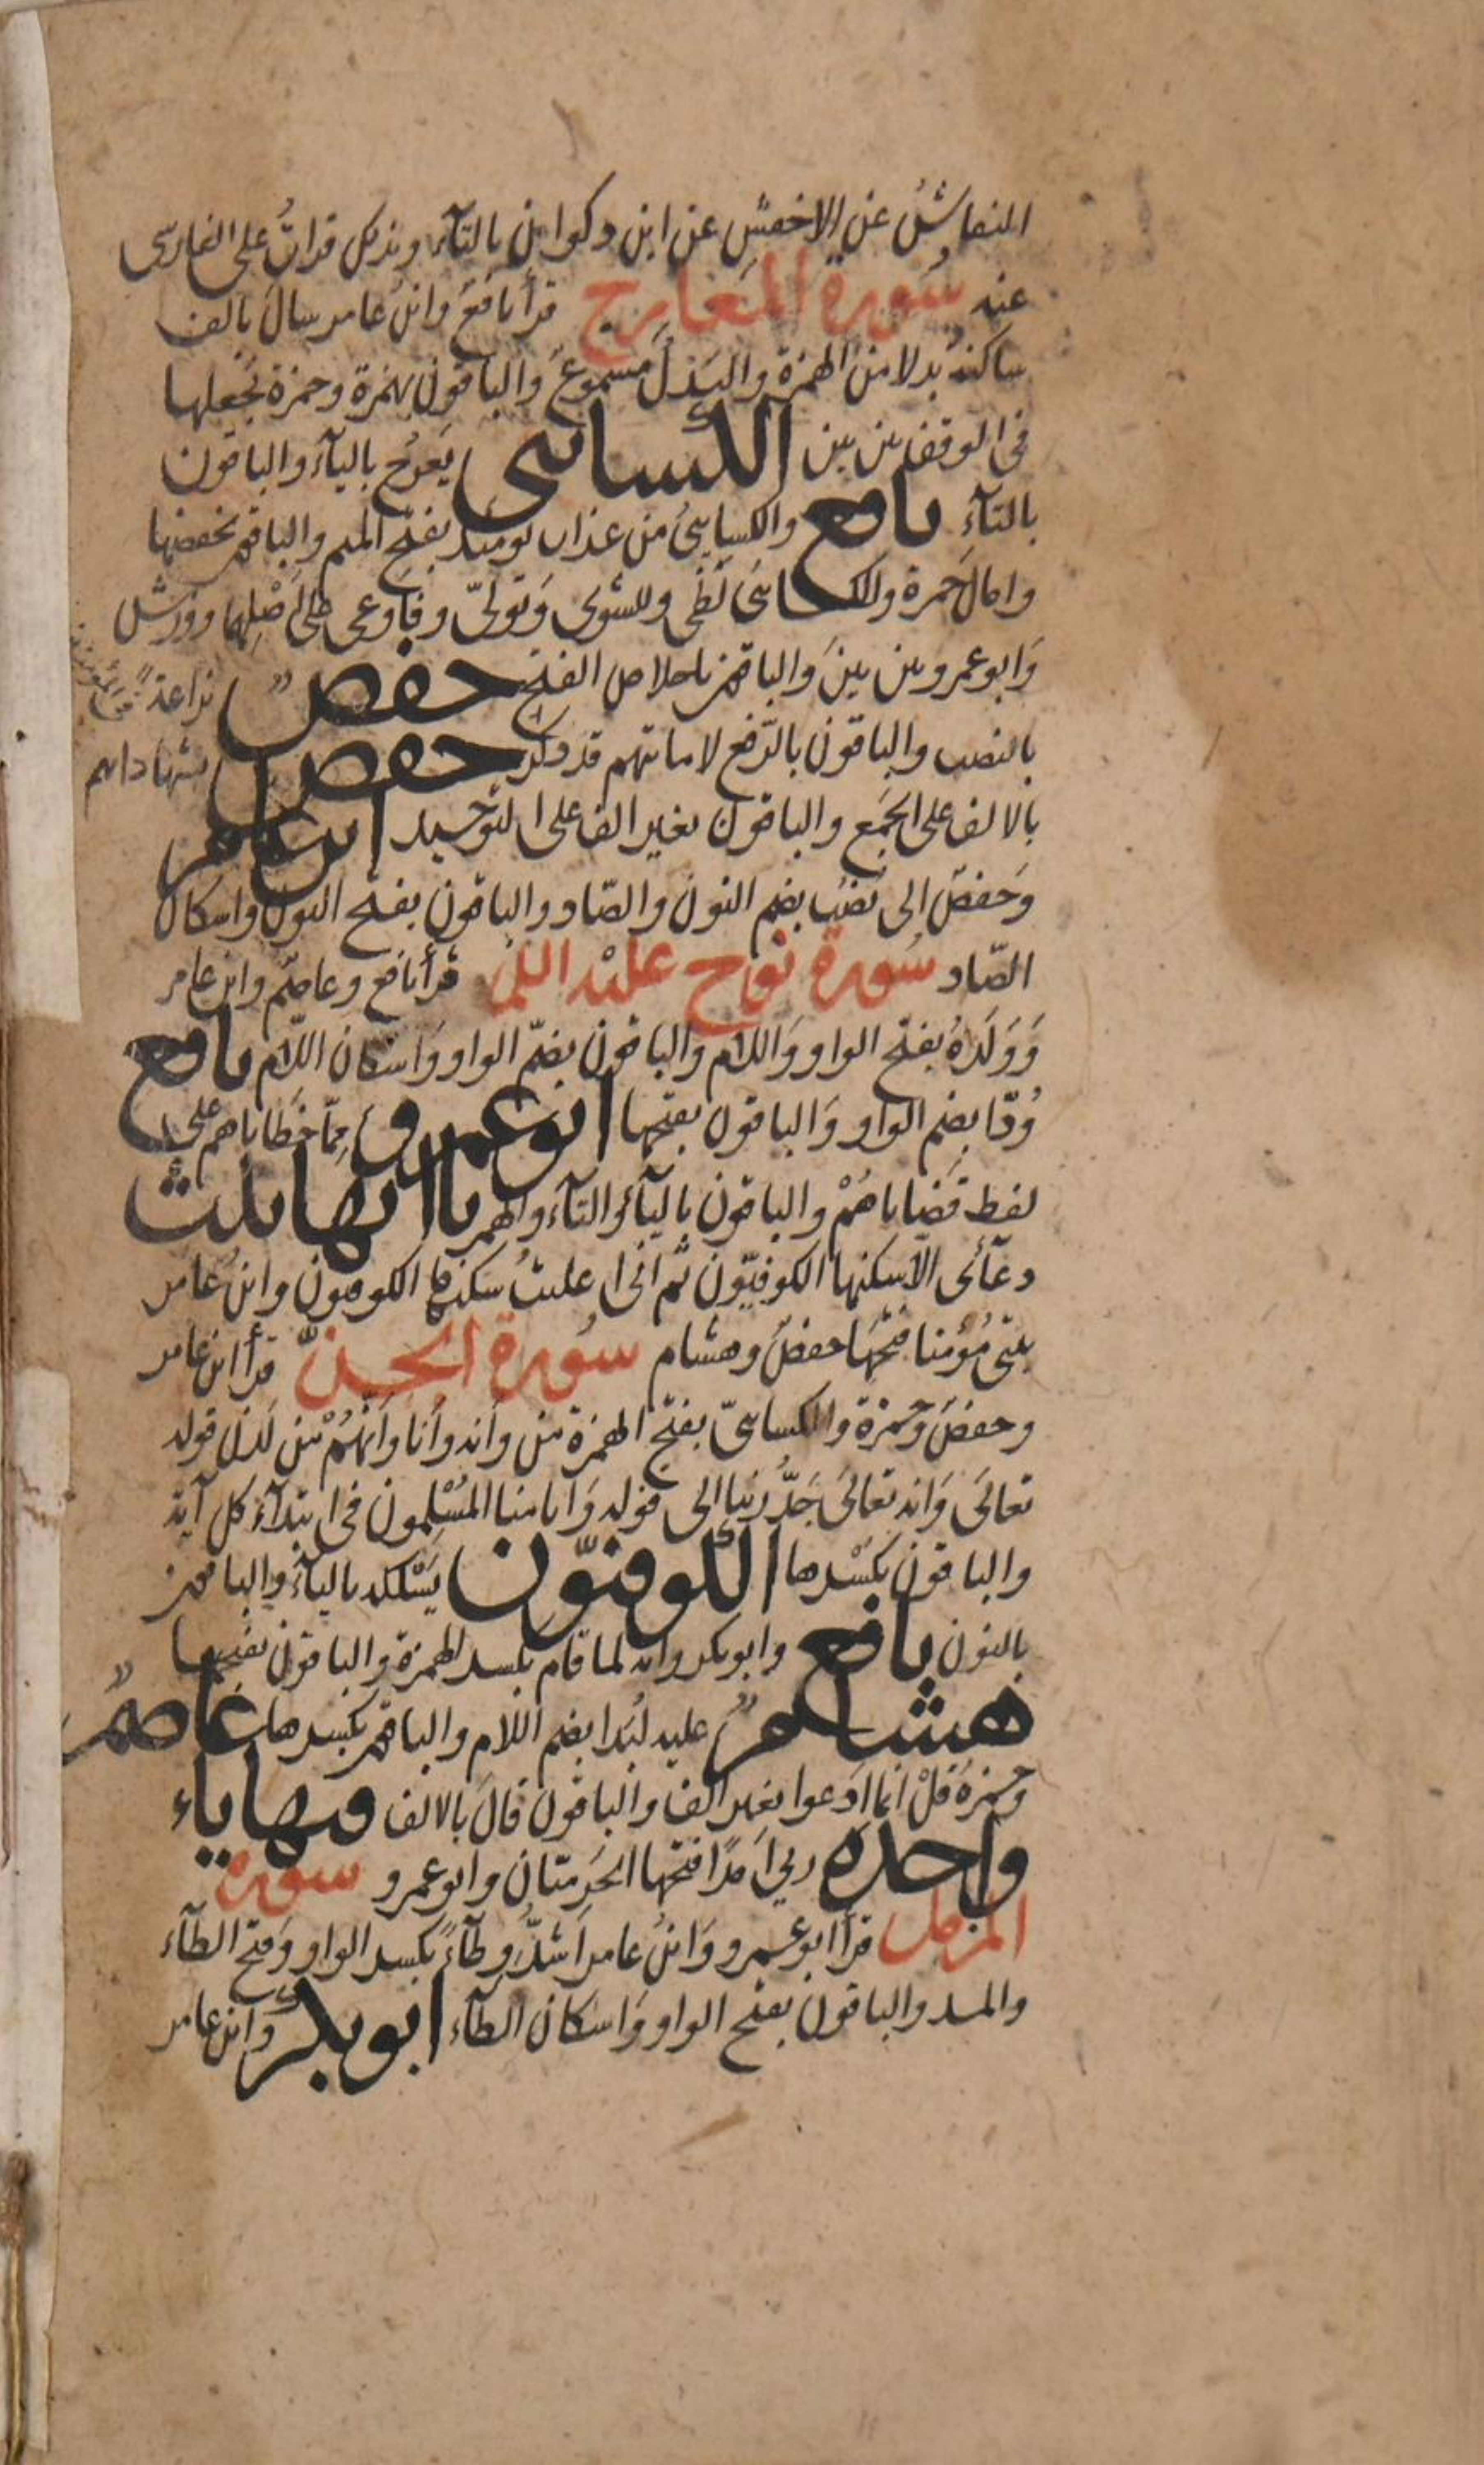 النقاش عن الاخفش عن ابن ذكوان بالتآء وبذلك قرات على الفارسى
عنه سورة المعارج قرأ نافع وابن عامر سال بالف
ساكنة بدلا من الهمزة والبدل مسموع والباقون بهمزة وحمزة يجعلها
فى الوقف بين بين الكسائى يعرج باليآء والباقون
بالتآء نافع والكسائى من عذاب يومئذ بفتح الميم والباقون بخفضها
وامال حمزة والكسائى لظى وللشوى وتولى وفاوعى على اصلهما وورش
وابو عمرو بين بين والباقون باخلاص الفتح حفص نزاعة
بالنصب والباقون بالرفع لاماناتهم قد ذكر حفص بشهاداتهم
بالالف على الجمع والباقون بغير الف على التوحيد ابن عامر
وحفص الى نصب بضم النون والصاد والباقون بفتح النون واسكان
الصاد سورة نوح عليه السلم قرأ نافع وعاصم وابن عامر
وولده بفتح الواو واللام والباقون بضم الواو واسكان اللام نافع
ودا بضم الواو والباقون بفتحها ابو عمرو مما خطاياهم على
لفظ قضاياهم والباقون باليآء والتآء والهمز يااتها ثلث
دعآئى الا سكنها الكوفيون ثم انى اعلنت سكنها الكوفيون وابن عامر
بيتى مؤمنا فتحها حفص وهشام سورة الجن قرأ ابن عامر
وحفص وحمزة والكسائى بفتح الهمزة من وانه وانا وانهم من لدن قوله
تعالى وانه تعالى جد ربنا الى قوله وانا منا المسلمون فى ابتدآء كل آية
والباقون بكسرها الكوفيون يسلكه باليآء والباقون
بالنون نافع وابو بكر وانه لما قام بكسر الهمزة والباقون بفتحها
هشام عليه لبدا بضم اللام والباقون بكسرها عاصم
وحمزة قل انما ادعوا بغير الف والباقون قال بالالف فيها ياء
واحدة ربي امدا فتحها الحرميان وابو عمرو سورة
المزمل قرأ ابو عمرو وابن عامر اشد وطآء بكسر الواو وفتح الطآء
والمد والباقون بفتح الواو واسكان الطآء ابو بكر وابن عامر